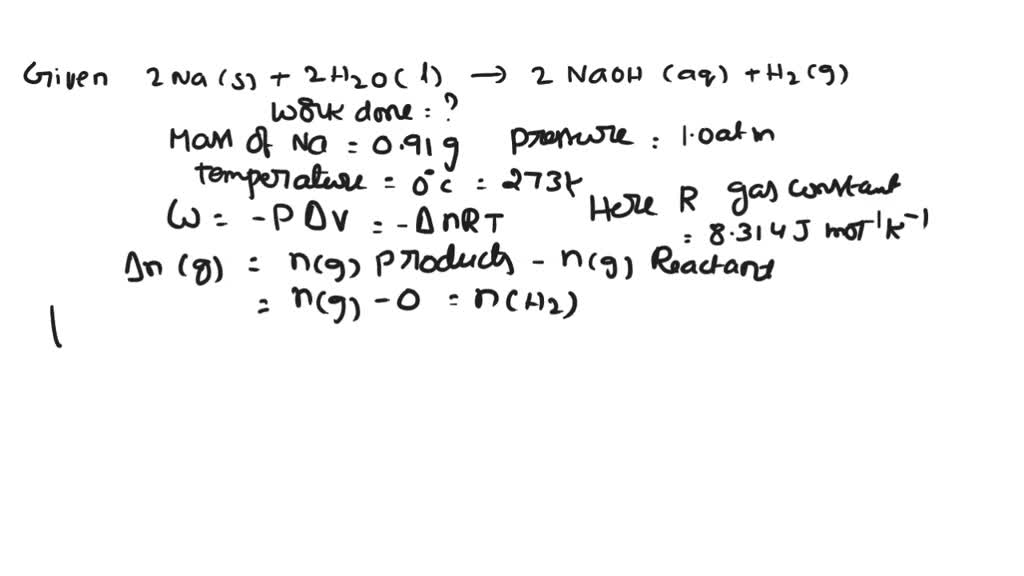 Given 2 Na (s) + 2H₂O(l) → 2 NaOH (aq) + H₂(g)
Work done = ?
Mass of Na = 0.91g pressure = 1.0atm
temperature = 0°C = 273K
Here R gas constant
= 8.314 J mol⁻¹K⁻¹
W = -PΔV = -ΔnRT
Δn (g) = n(g) products - n(g) Reactant
= n(g) - 0 = n(H₂)